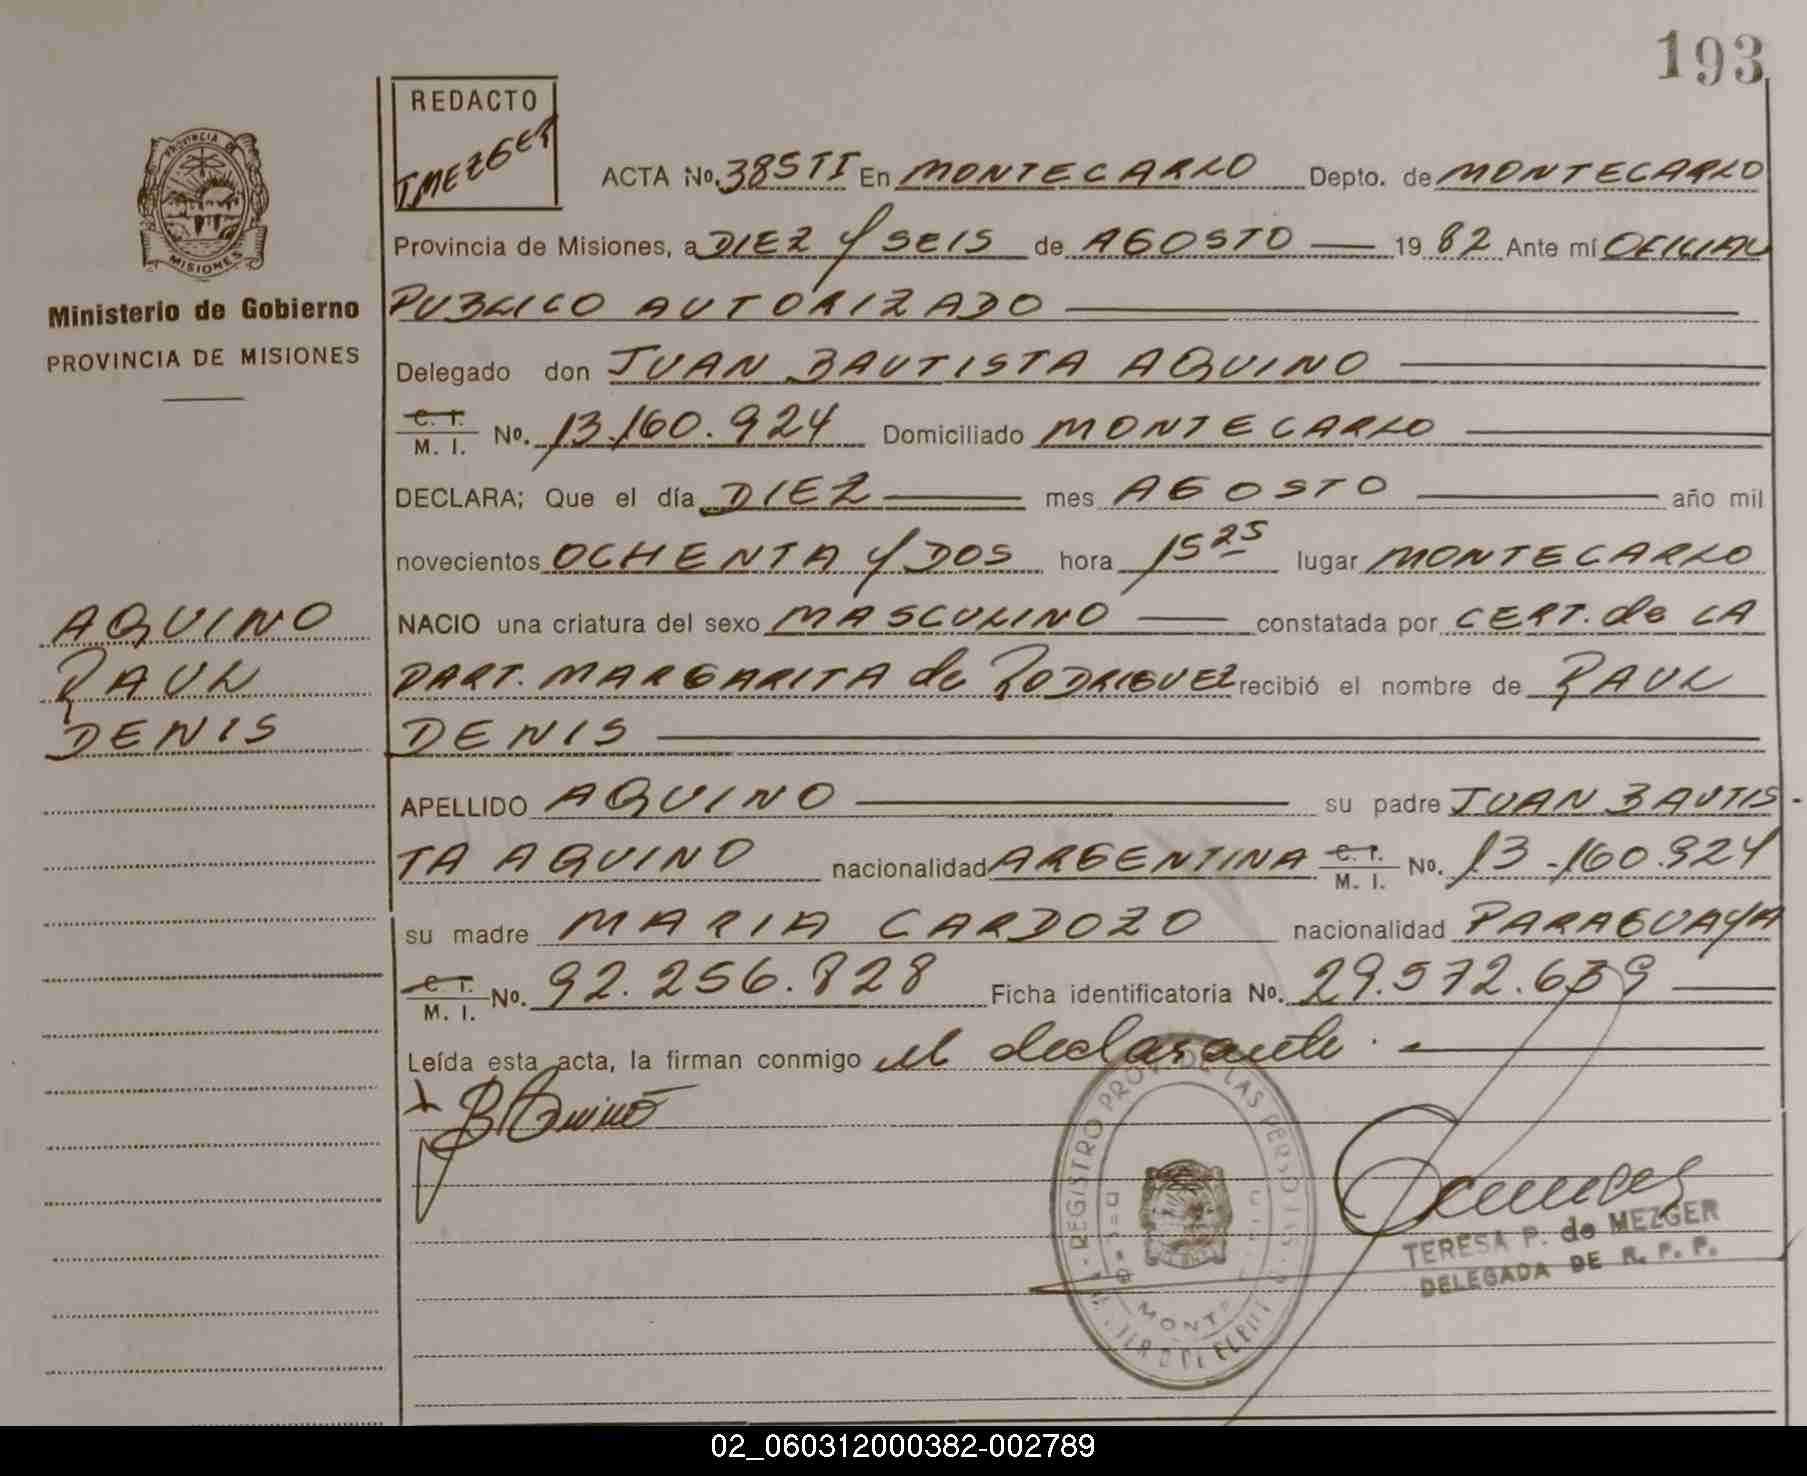 193
REDACTO
T.MEZGER
PROVINCIA D
MISIONES
Ministerio de Gobierno
PROVINCIA DE MISIONES
ACTA No. 385 TI En MONTECARLO Depto. de MONTECARLO
Provincia de Misiones, a DIEZ Y SEIS de AGOSTO 1982 Ante mí OFICIAL
PUBLICO AUTORIZADO
Delegado don JUAN BAUTISTA AQUINO
C. I. M. I. No. 13.160.924 Domiciliado MONTECARLO
DECLARA; Que el día DIEZ mes AGOSTO año mil
novecientos OCHENTA Y DOS hora 15 25 lugar MONTECARLO
NACIO una criatura del sexo MASCULINO constatada por CERT. de LA
PART. MARGARITA de RODRIGUEZ recibió el nombre de RAUL
DENIS
AQUINO
RAUL
DENIS
APELLIDO AQUINO su padre JUAN BAUTIS-
TA AQUINO nacionalidad ARGENTINA C. I. M. I. No. 13.160.924
su madre MARIA CARDOZO nacionalidad PARAGUAYA
C. I. M. I. No. 92.256.828 Ficha identificatoria No. 29.572.639
Leída esta acta, la firman conmigo el declarante.
REGISTRO PROV. DE LAS PERSONAS
MONTE
TERESA P. de MEZGER
DELEGADA DE R. P. P.
02_060312000382-002789